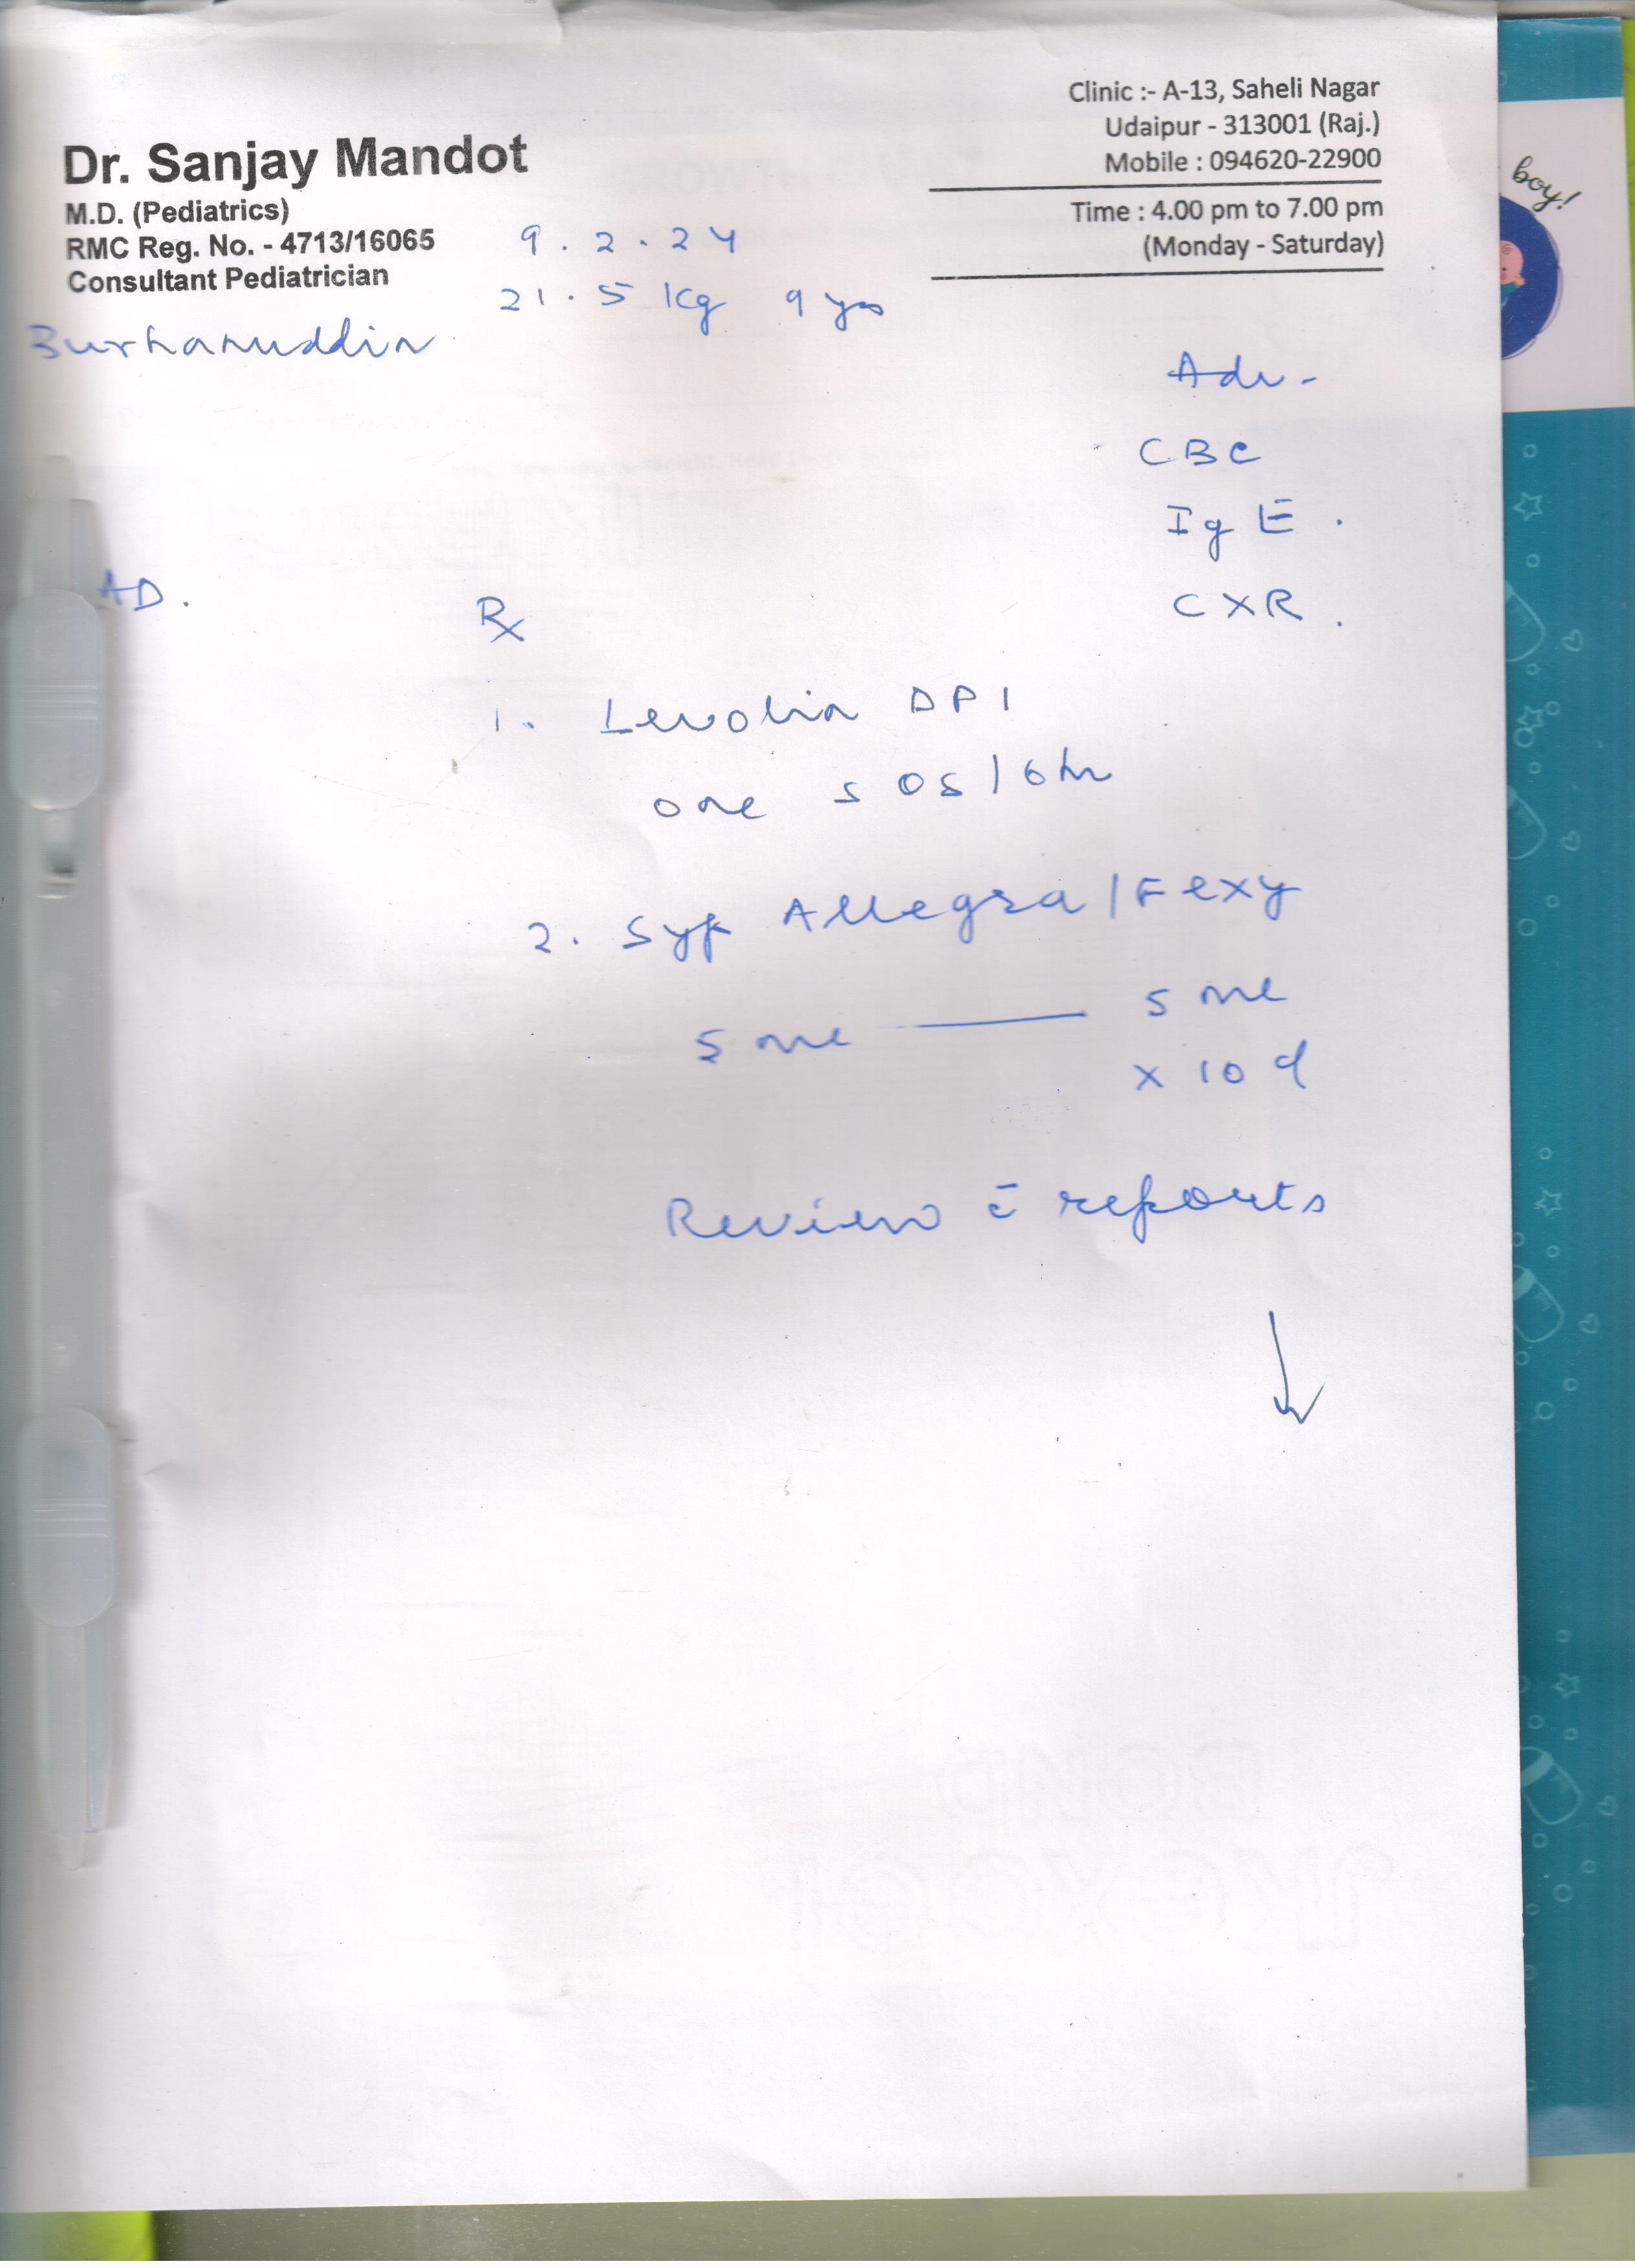 Clinic :- A-13, Saheli Nagar
Udaipur - 313001 (Raj.)
Mobile : 094620-22900
Time : 4.00 pm to 7.00 pm
(Monday - Saturday)
Dr. Sanjay Mandot
M.D. (Pediatrics)
RMC Reg. No. - 4713/16065
Consultant Pediatrician
9.2.24
21.5 kg 9 yrs
Burhanuddin
Adv-
CBC
IgE.
CXR.
AD.
Rx
1. Levolin DPI
one SOS/6hr
2. Syp Allegra/Fexy
5 ml — 5 ml
x 10 d
Review c̄ reports
↓
boy!